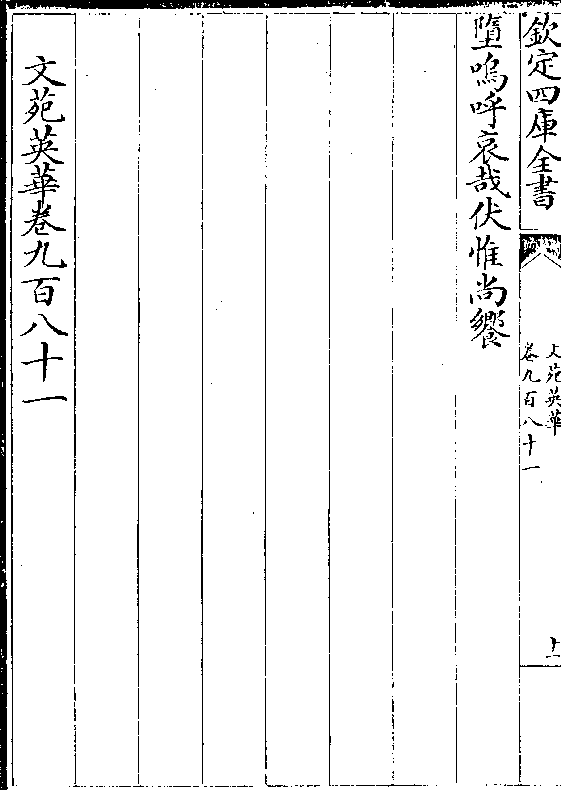 欽定四庫全書
文苑英華
卷九百八十一
十一
墮嗚呼哀哉伏惟尚饗
文苑英華卷九百八十一